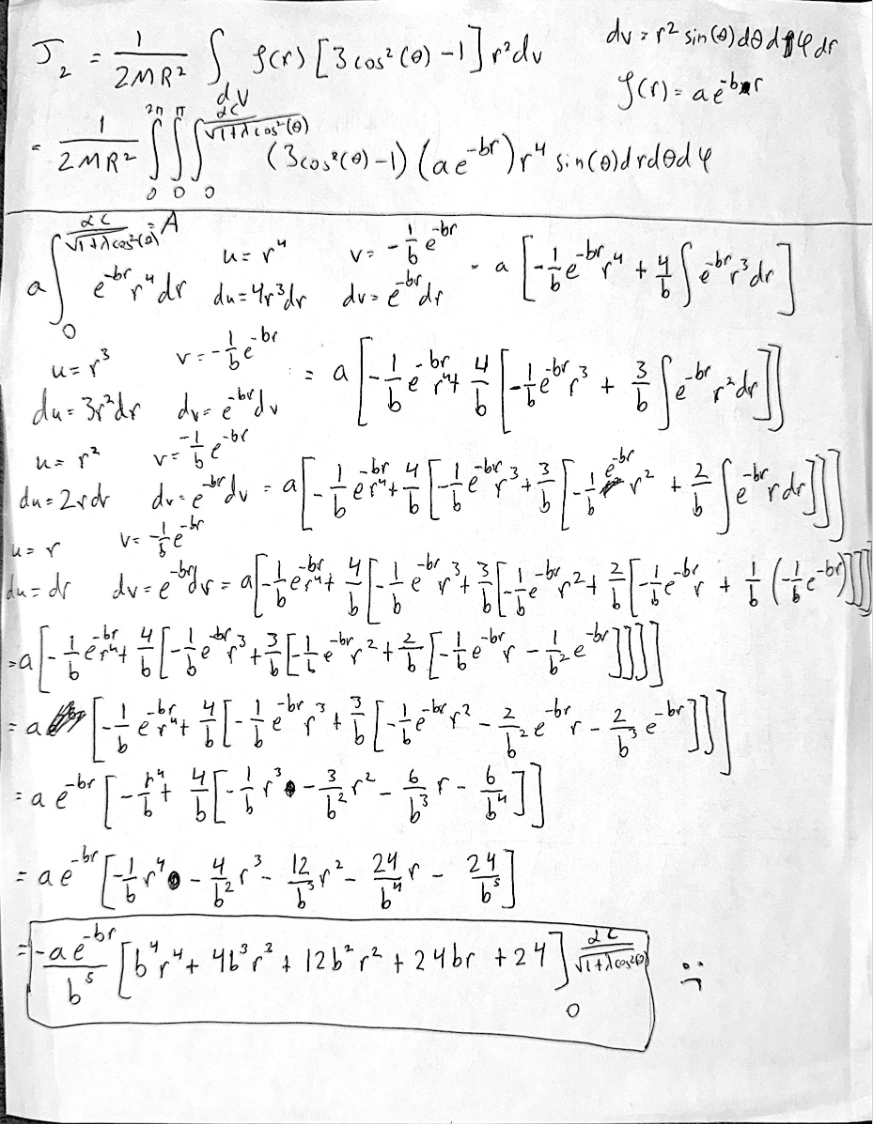 J₂ = 1/(2MR²) ∫_dV ρ(r) [3cos²(θ) -1] r² dv
dv = r² sin(θ) dθ dφ dr
ρ(r) = a e^(-br)
= 1/(2MR²) ∫_0^(2π) ∫_0^π ∫_0^(αC/√(1+λcos²(θ))) (3cos²(θ) -1) (a e^(-br)) r⁴ sin(θ) dr dθ dφ
a ∫_0^(αC/√(1+λcos²(θ)) = A) e^(-br) r⁴ dr    u = r⁴    v = -1/b e^(-br)    = a [-1/b e^(-br) r⁴ + 4/b ∫ e^(-br) r³ dr]
du = 4r³ dr    dv = e^(-br) dr
u = r³    v = -1/b e^(-br)    = a [-1/b e^(-br) r⁴ + 4/b [-1/b e^(-br) r³ + 3/b ∫ e^(-br) r² dr]]
du = 3r² dr    dv = e^(-br) dv
u = r²    v = -1/b e^(-br)
du = 2r dr    dv = e^(-br) dv = a [-1/b e^(-br) r⁴ + 4/b [-1/b e^(-br) r³ + 3/b [-1/b e^(-br) r² + 2/b ∫ e^(-br) r dr]]]
u = r    v = -1/b e^(-br)
du = dr    dv = e^(-br) dr = a [-1/b e^(-br) r⁴ + 4/b [-1/b e^(-br) r³ + 3/b [-1/b e^(-br) r² + 2/b [-1/b e^(-br) r + 1/b (-1/b e^(-br))]]]]
= a [-1/b e^(-br) r⁴ + 4/b [-1/b e^(-br) r³ + 3/b [-1/b e^(-br) r² + 2/b [-1/b e^(-br) r - 1/b² e^(-br)]]]]
= a [-1/b e^(-br) r⁴ + 4/b [-1/b e^(-br) r³ + 3/b [-1/b e^(-br) r² - 2/b² e^(-br) r - 2/b³ e^(-br)]]]
= a e^(-br) [-r⁴/b + 4/b [-1/b r³ - 3/b² r² - 6/b³ r - 6/b⁴]]
= a e^(-br) [-1/b r⁴ - 4/b² r³ - 12/b³ r² - 24/b⁴ r - 24/b⁵]
= -a e^(-br)/b⁵ [b⁴r⁴ + 4b³r³ + 12b²r² + 24br + 24]_0^(αC/√(1+λcos²(θ)))